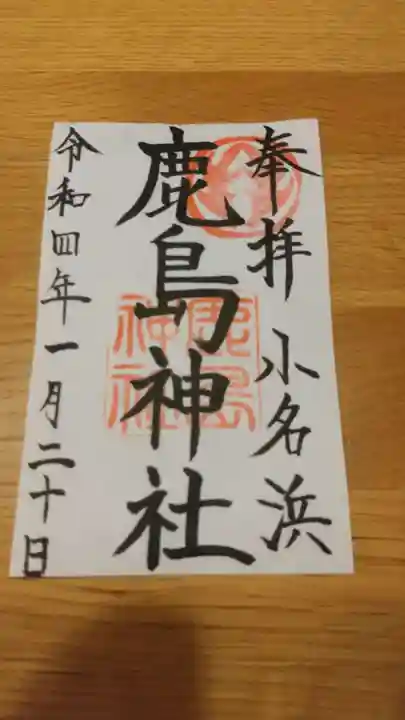 奉拝 小名浜
鹿島神社
鹿島神社
令和四年一月二十日